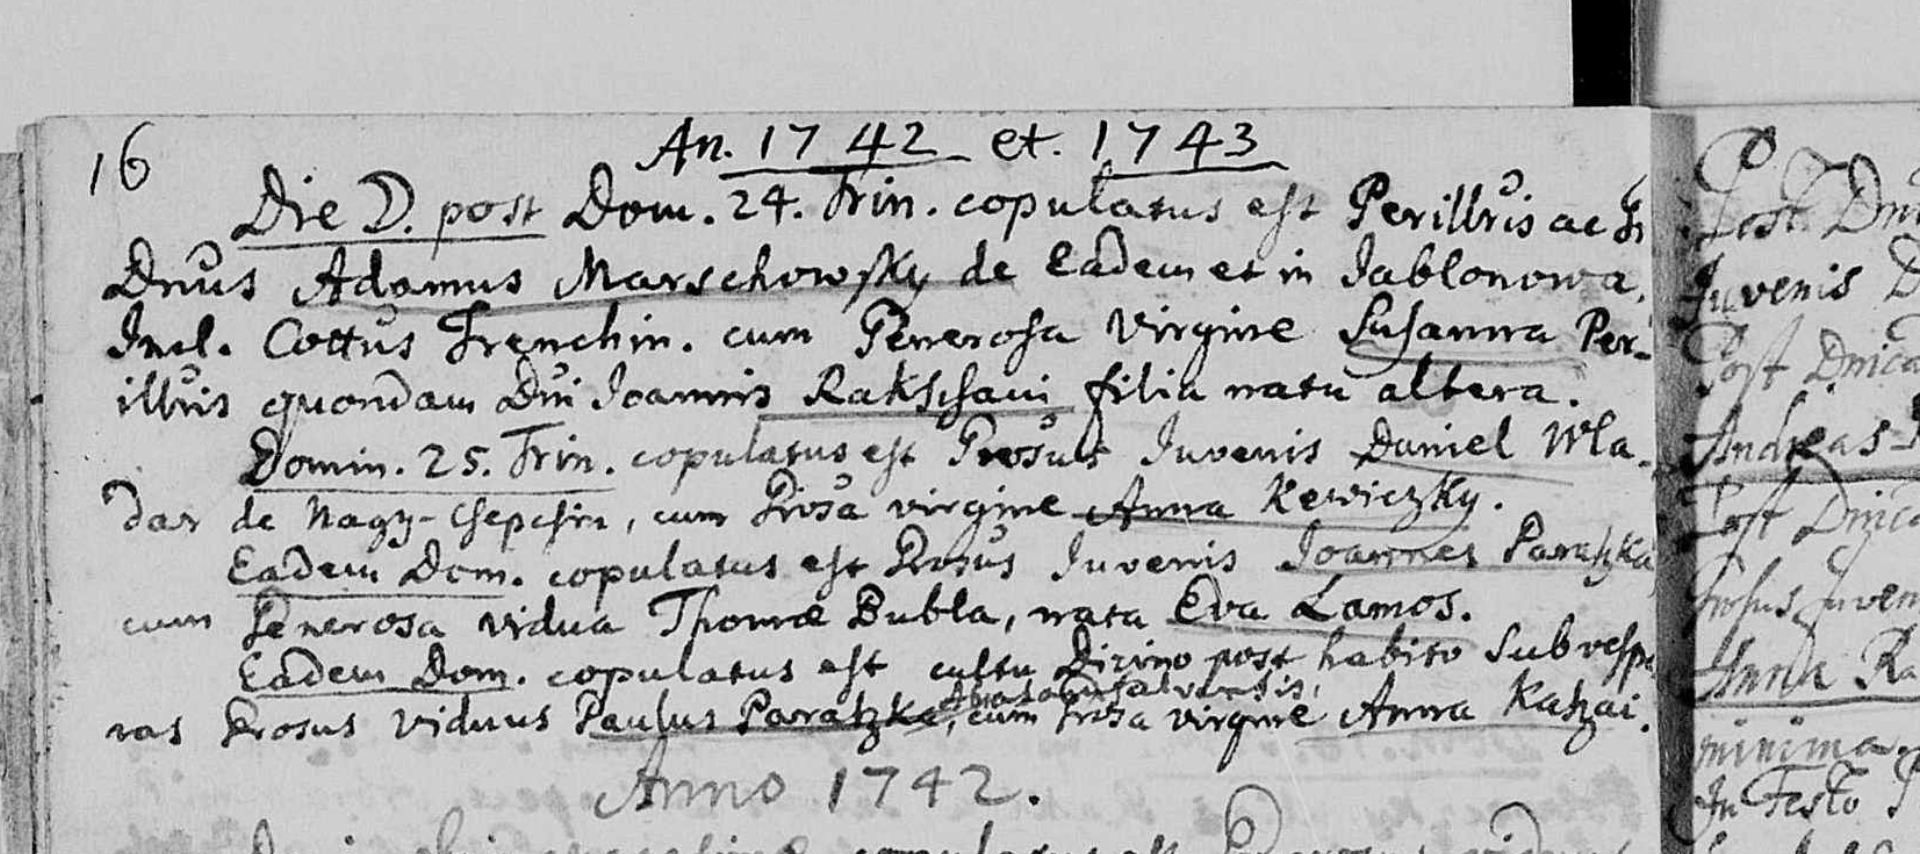 16
An. 1742 et. 1743
Die D. post Dom. 24. Trin. copulatus est Perillris ac
Dnus Adamus Marschowsky de Eadem et in Jablonowa,
Incl. Cottus Trenchin. cum Generosa Virgine Susanna Per-
illris quondam Dni Joannis Rakschani filia natu altera.
Domin. 25. Trin. copulatus est Juvenis Daniel Wla-
dar de Nagy-Csepchin, cum Grosa virgine Anna Kewiczky.
Eadem Dom. copulatus est Grosus Juvenis Joannes Paratzka
cum Generosa vidua Thomæ Bubla, nata Eva Lamos.
Eadem Dom. copulatus est cultu Divino post habito sub vespe
ras Grosus viduus Paulus Paratzka, cum Grosa virgine Anna Kaszai.
Anno 1742.
copulatus est
Post Dni
Juvenis D
Post Dnica
Andreas
Post Dnica
Juven
Anna Ra
minima.
In Festo